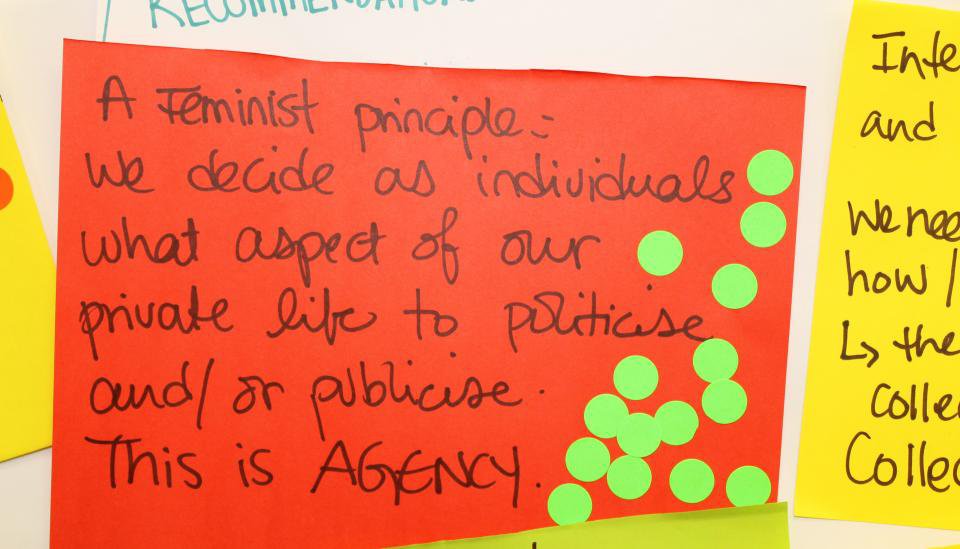 RECOMMENDATIONS
A Feminist principle:-
We decide as individuals
what aspect of our
private life to politicise
and/or publicise.
This is AGENCY.
Inte
and
We nee
how /
↳ the
Colle
Collec